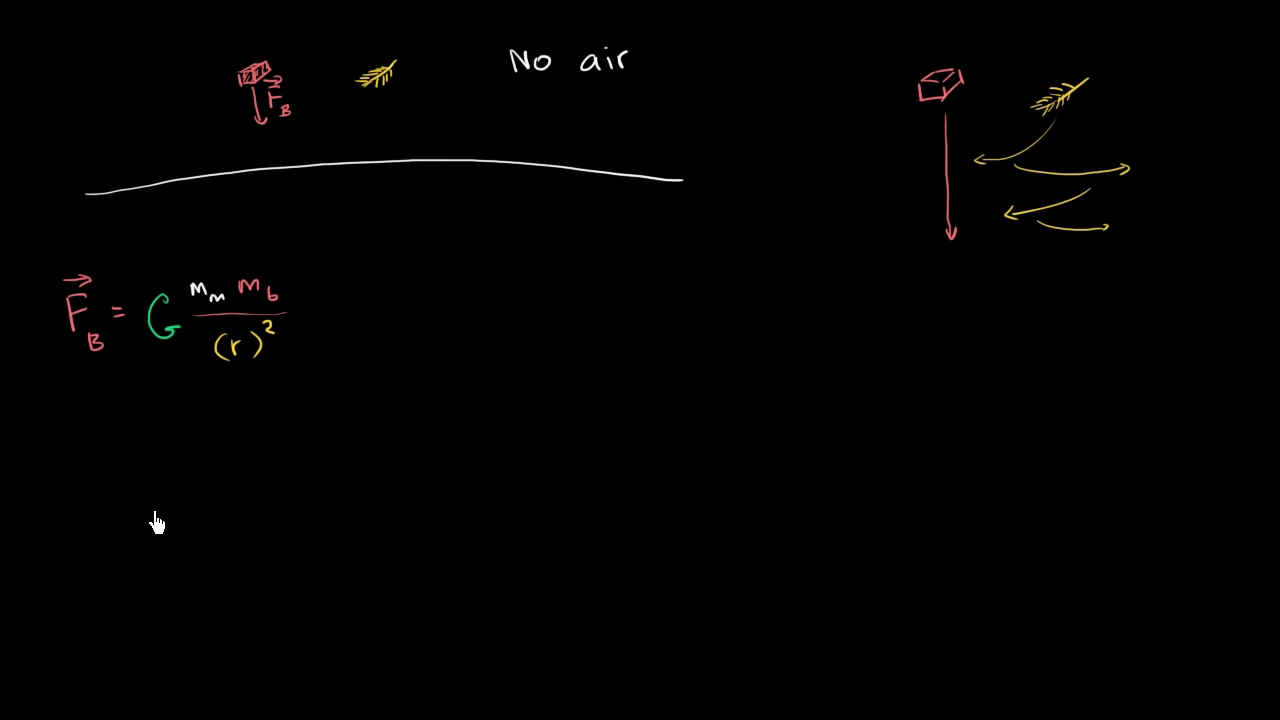 No air
F⃗_B
F⃗_B = G m_m m_b / (r)²